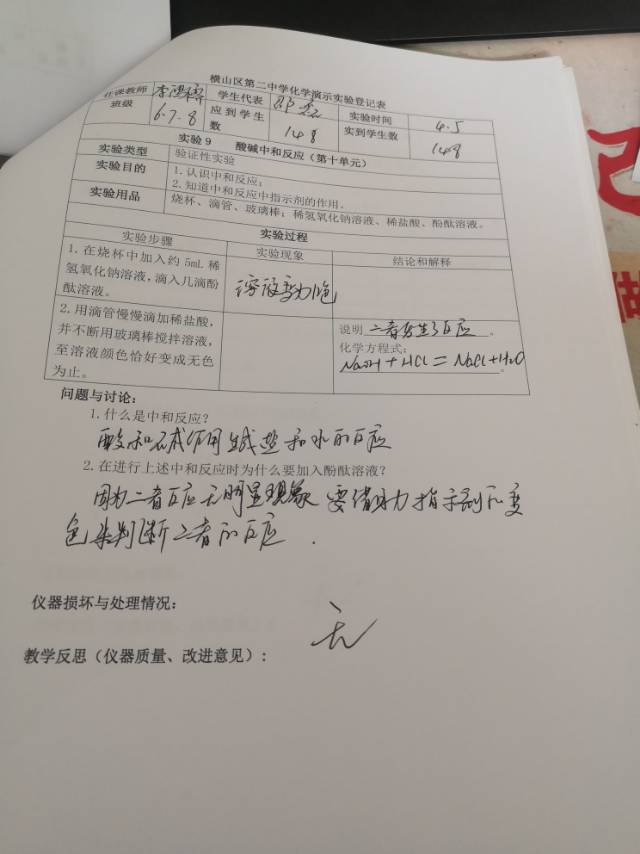 横山区第二中学化学演示实验登记表
任课教师 李 学生代表 实验时间 4.5
班级 6.7.8 应到学生数 148 实到学生数 148
实验9 酸碱中和反应（第十单元）
实验类型 验证性实验
实验目的 1.认识中和反应；
2.知道中和反应中指示剂的作用。
实验用品 烧杯、滴管、玻璃棒；稀氢氧化钠溶液、稀盐酸、酚酞溶液。
实验过程
实验步骤 实验现象 结论和解释
1.在烧杯中加入约5mL稀
氢氧化钠溶液，滴入几滴酚
酞溶液。
溶液变为色
2.用滴管慢慢滴加稀盐酸，
并不断用玻璃棒搅拌溶液，
至溶液颜色恰好变成无色
为止。
说明 二者发生了反应。
化学方程式：
NaOH+HCl=NaCl+H2O。
问题与讨论：
1.什么是中和反应？
酸和碱作用生成盐和水的反应
2.在进行上述中和反应时为什么要加入酚酞溶液？
因为二者反应无明显现象 要借助 指示剂的变
色来判断二者的反应.
仪器损坏与处理情况：
无
教学反思（仪器质量、改进意见）：